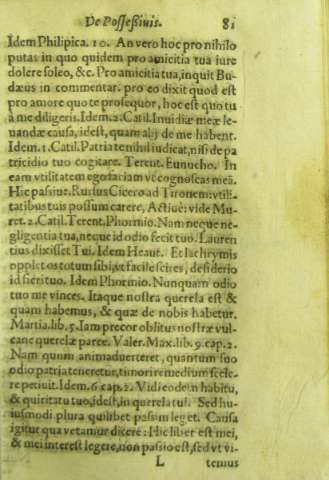 De Possessivis. 81
Idem Philipica. 10. An vero hoc pro nihilo
putas in quo quidem pro amicitia tua iure
dolere soleo, &c. Pro amicitia tua, inquit Bu-
dæus in commentar. pro eo dixit quod est
pro amore quo te prosequor, hoc est quo tu
a me diligeris. Idem. 2. Catil. Inuidiæ meæ le-
uandæ causa, id est, quam alij de me habent.
Idem. 1. Catil. Patria te nihil iudicat, nisi de pa
tricidio tuo cogitare. Terent. Eunucho. In
eam vtilitatem egofariam vt cognoscas mea.
Hic passiue. Rursus Cicero ad Tironem: vtili-
tatibus tuis possum carere, Actiuè: vide Mu-
ret. 2. Catil. Terent. Phormio. Nam neque ne-
gligentia tua, neque id odio fecit tuo. Lauren
tius dixisset Tui. Idem Heaut. Et lachrymis
opplet os totum sibi, vt facile scires, desiderio
id fieri tuo. Idem Phormio. Nunquam odio
tuo me vinces. Itaque nostra querela est &
quam habemus, & quæ de nobis habetur.
Martia. lib. 5. Iam precor oblitus nostræ vul-
cane querelæ parce. Valer. Max. lib. 9. cap. 2.
Nam quum animaduerteret, quantum suo
odio patria teneretur, timori remedium scele-
re petiuit. Idem. 6 cap. 2. Vidi eodem habitu,
& quiritatu tuo, idest, in querela tui. Sed hu
iusmodi plura quilibet passim leget. Causa
igitur qua vetamur dicere: Hic liber est mei,
& mei interest legere, non passio est, sed vt vi-
L temus